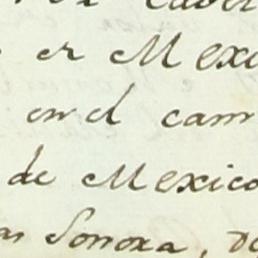 er Mexi
en el cam
de Mexico
Sonora, De